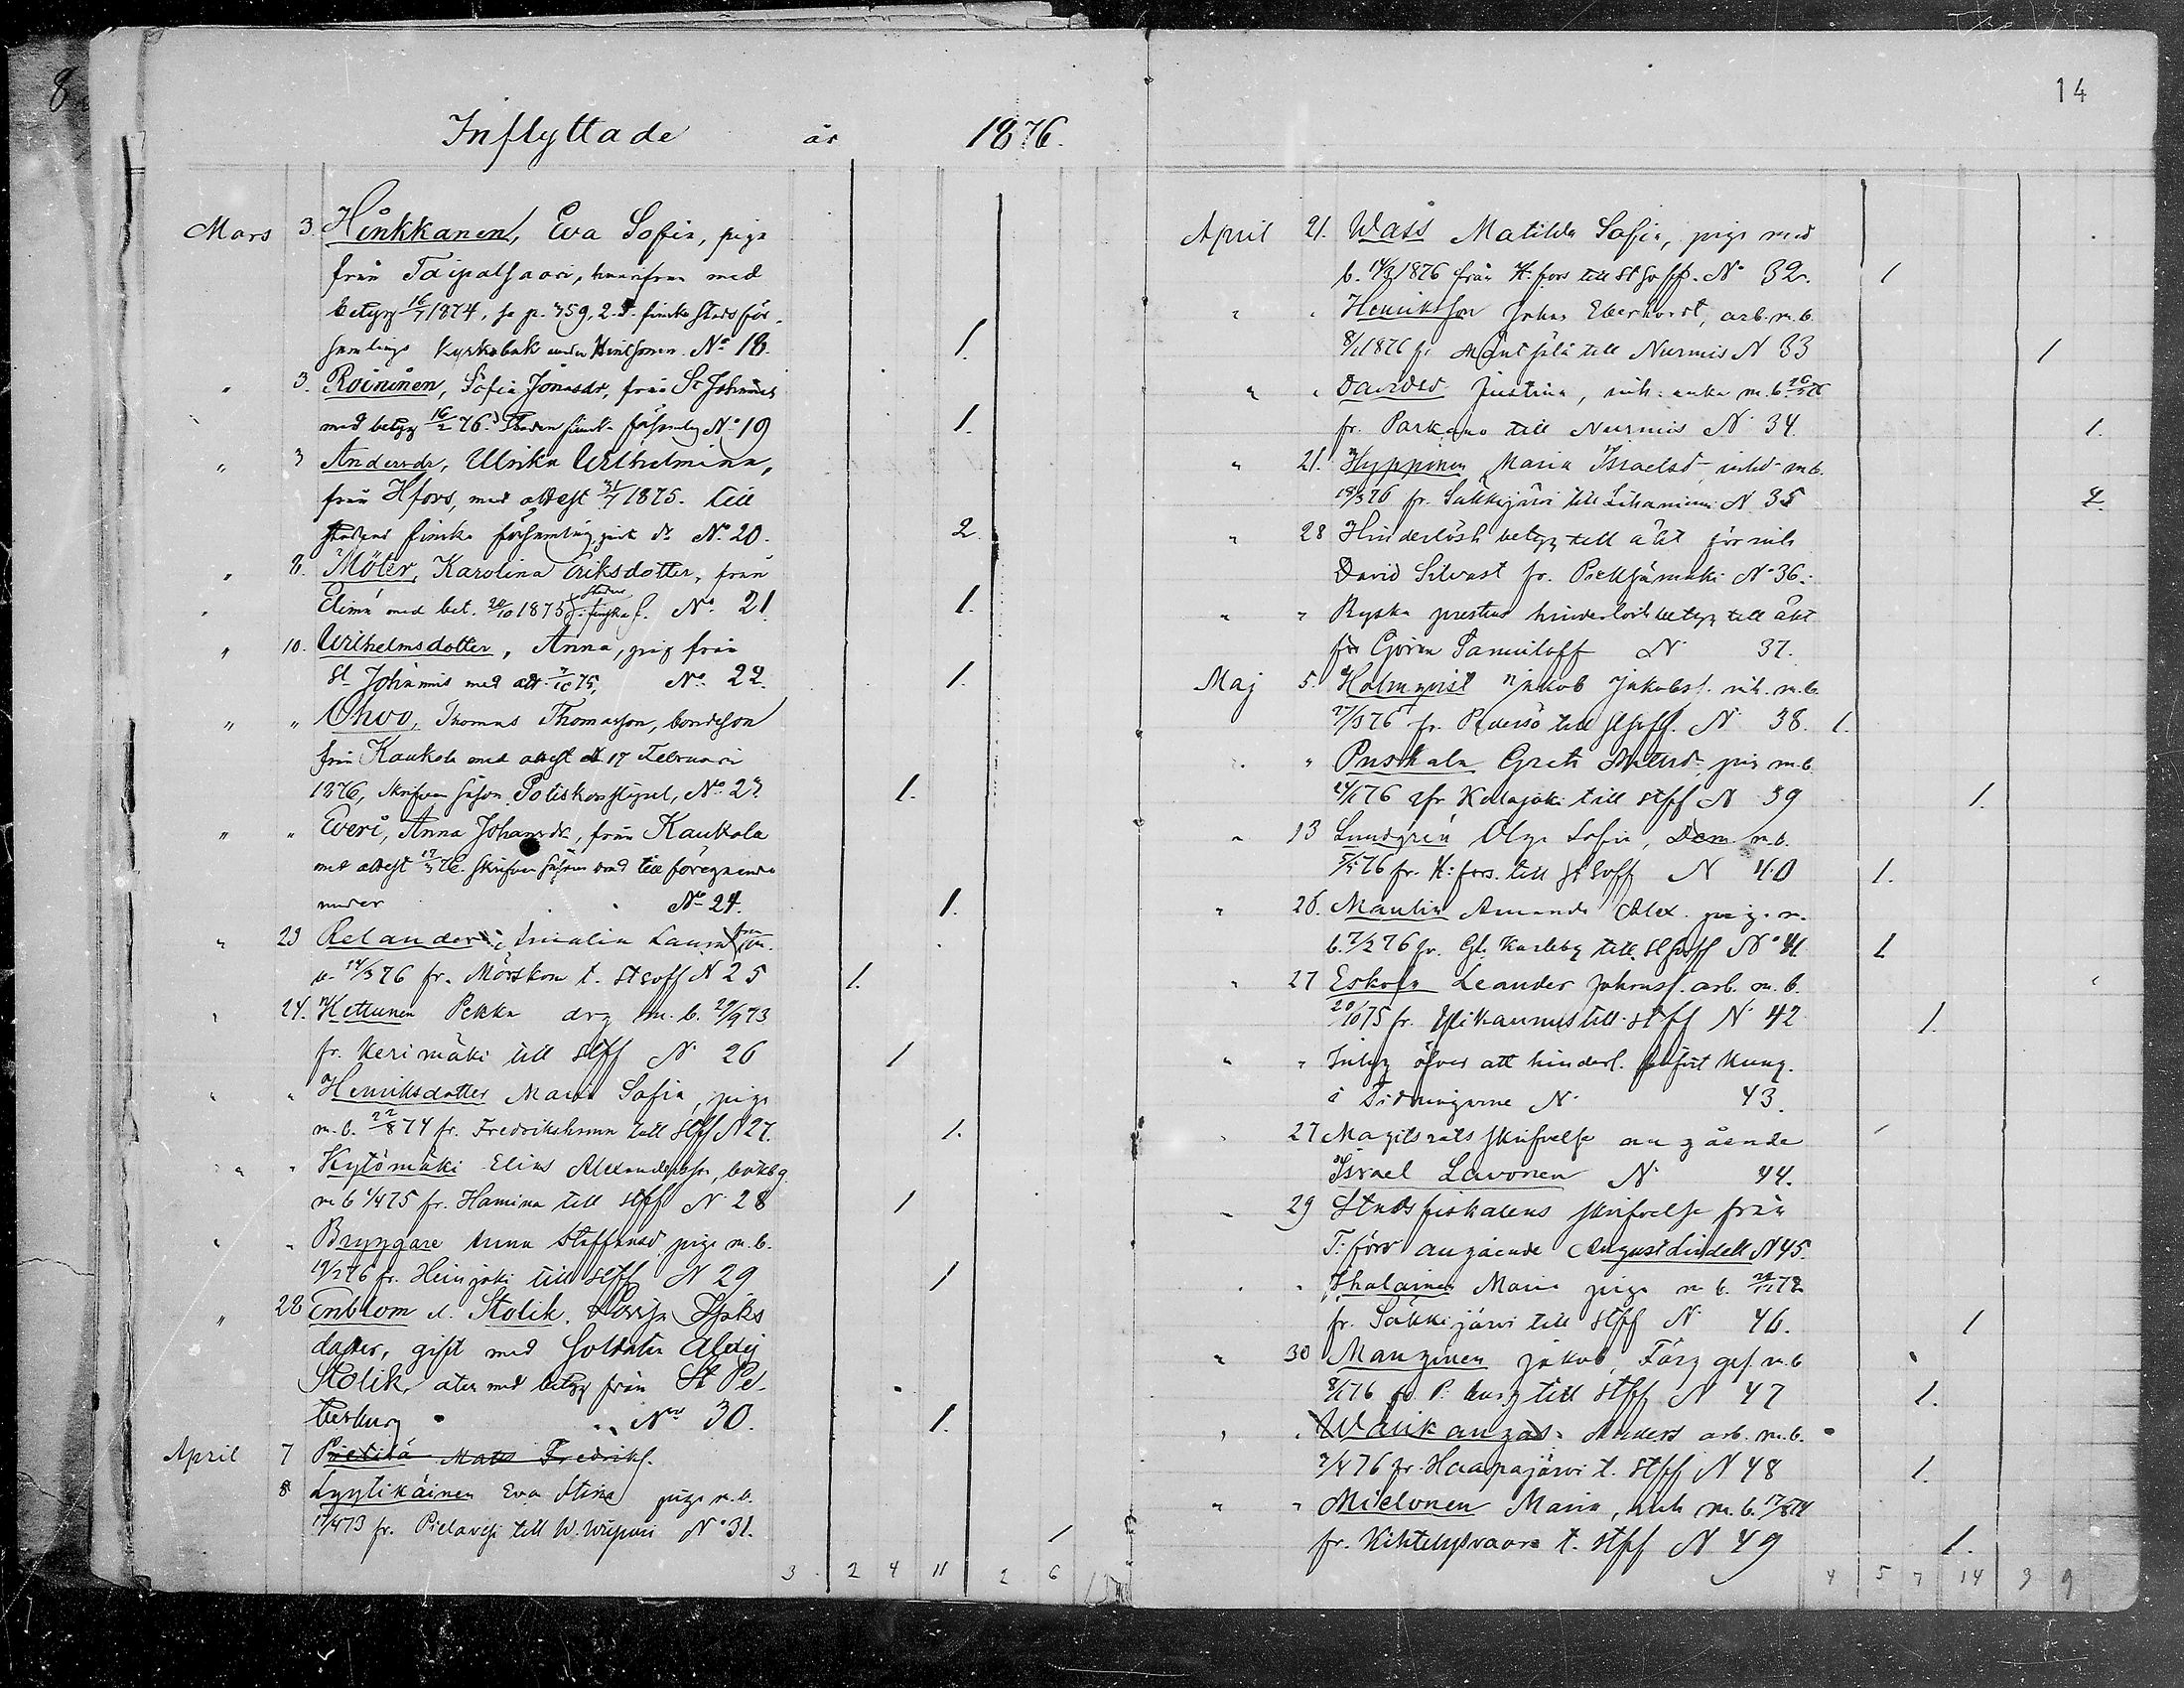 8
14
Inflyttade år 1876.
Mars 3. Hinkkanen, Eva Sofia, piga
från Taipalsaari, hvarifrån med
betyg 16/7 1874, se p. 759, 2. D. finska stads för-
samlings Kyrkobok under Hintsanen. No 18. 1.
" 3. Roininen, Sofia Jonasdr, från St Johannes
med betyg 16/2 76. Staden finska församlg No 19 1.
" 3 Andersdr, Ulrika Wilhelmina,
från Hfors, med attest 31/7 1875. till
stadens finska församling, gift d. No. 20. 2.
" 8. Möler, Karolina Eriksdotter, från
Elimä med bet. 20/10 1875 Stadens finska f. No. 21. 1.
" 10. Wilhelmsdotter, Anna, piga från
St Johannis med att. 7/10 75, No. 22. 1.
" " Ohvo, Thomas Thomasson, bondeson
från Kaukola med attest d. 17 Februari
1876, skrifven såsom Poliskonstapel, No. 23. 1.
" " Everi, Anna Johansdr, från Kaukola
med attest 17/2 76. skrifven såsom till föregående
under No 24. 1.
" 23 Relander, Amalia Laura frn m.
b. 14/3 76 fr. Mörskom t. St soff N 25 1.
" 24. Kettunen Pekka drg m. b. 29/9 73
fr. Kerimäki till stff N. 26 1
" " Henriksdotter Maria Sofia, piga
m. b. 22/8 74 fr. Fredrikshamn till Stff N 27. 1.
" " Kytömäki Elias Alexandersson,
m b 1/4 75 fr. Hamina till stff N 28 1
" " Bryggare Anna Staffansd piga m. b.
19/2 76 fr. Heinjoki till stff N 29 1
" 28 Enblom d. Stolik, Lovisa Isaks
dotter, gift med Soldaten Alexej
Stolik, åter med betyg från St Pe-
tersburg No 30. 1.
April 7 Pietilä Mats Fredriks.
8 Lyytikäinen Eva Stina piga m. b.
17/4 73 fr. Pielavesi till W. Wiipuri No 31. 1
3 2 4 11 2 6
April 21. Wass Matilda Sofia, piga med
b. 14/3 1876 från H. fors till St soff. No 32. 1
" " Henriksson Johan Eberhard, arb. m. b.
8/1 1876 fr. Mäntsälä till Nurmis N 33 1
" " Davidsd Justina, inh. enka m. b 26/3 76
fr. Parkano till Nurmis N 34. 1.
" 21. Hypponen Maria Israelsd inhd m b.
18/3 76 fr. Säkkijärvi till Lihaniemi N 35 2.
" 28 Hinderlösh betyg till äkt för inh
David Silvast fr. Pieksämäki No 36.
" " Ryska prestens hinderlösh betyg till äkt
för Göran Samuiloff N 37.
Maj 5. Holmqvist Jakob Jakobss. inh. m. b.
27/3 76 fr. Pedersö till St soff. N 38. 1.
" Puskala Greta Mattsd. pig m. b.
24/1 76 fr Kelviåki till stff N 39 1.
" 13 Lundgren Olga Sofia, Dem m. b.
5/5 76 fr. H:fors. till St soff N 40 1.
" 26. Maulin Amanda Alex. piga m.
b. 7/2 76 fr. Gl. Karleby till St soff No 41 1
" 27 Eskola Leander Johanss. arb. m. b.
20/10 75 fr. Ylikannus till stff N 42 1.
" " Intyg öfver att hinderl. blifvit kung.
i Tidningarne N. 43.
" 27 Magistrats skrifvelse angående
Israel Lavonen N. 44.
" 29 Stadsfiskalens skrifvelse från
T:fors angående August Lindell N 45.
" " Ihalainen Maria piga m b. 28/11 72
fr. Säkkijärvi till stff N. 46. 1
" 30 Manginen Jakob, Färg ges. m. b
8/1 76 fr. P:burg till stff N 47 1.
" " Waukangas Anders arb. m. b.
2/4 76 fr. Haapajärvi t. Stff N 48 1.
" " Mielonen Maria, inh m. b. 17/8 74
fr. Kihtelysvaara t. stff N 49 1.
4 5 7 14 3 9